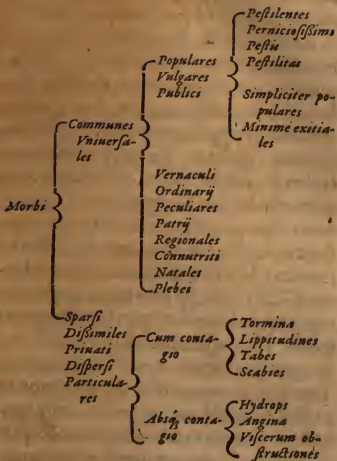 Morbi
Communes
Vniuerſa-
les
Populares
Vulgares
Publici
Peſtilentes
Pernicioſißimi
Peſtis
Peſtilitas
Simpliciter po-
pulares
Minimè exitia-
les
Vernaculi
Ordinarij
Peculiares
Patrij
Regionales
Connutriti
Natales
Plebei
Sparſi
Dißimiles
Priuati
Diſperſi
Particula-
res
Cum conta-
gio
Tormina
Lippitudines
Tabes
Scabies
Absq́; conta-
gio
Hydrops
Angina
Viſcerum ob-
ſtructiones